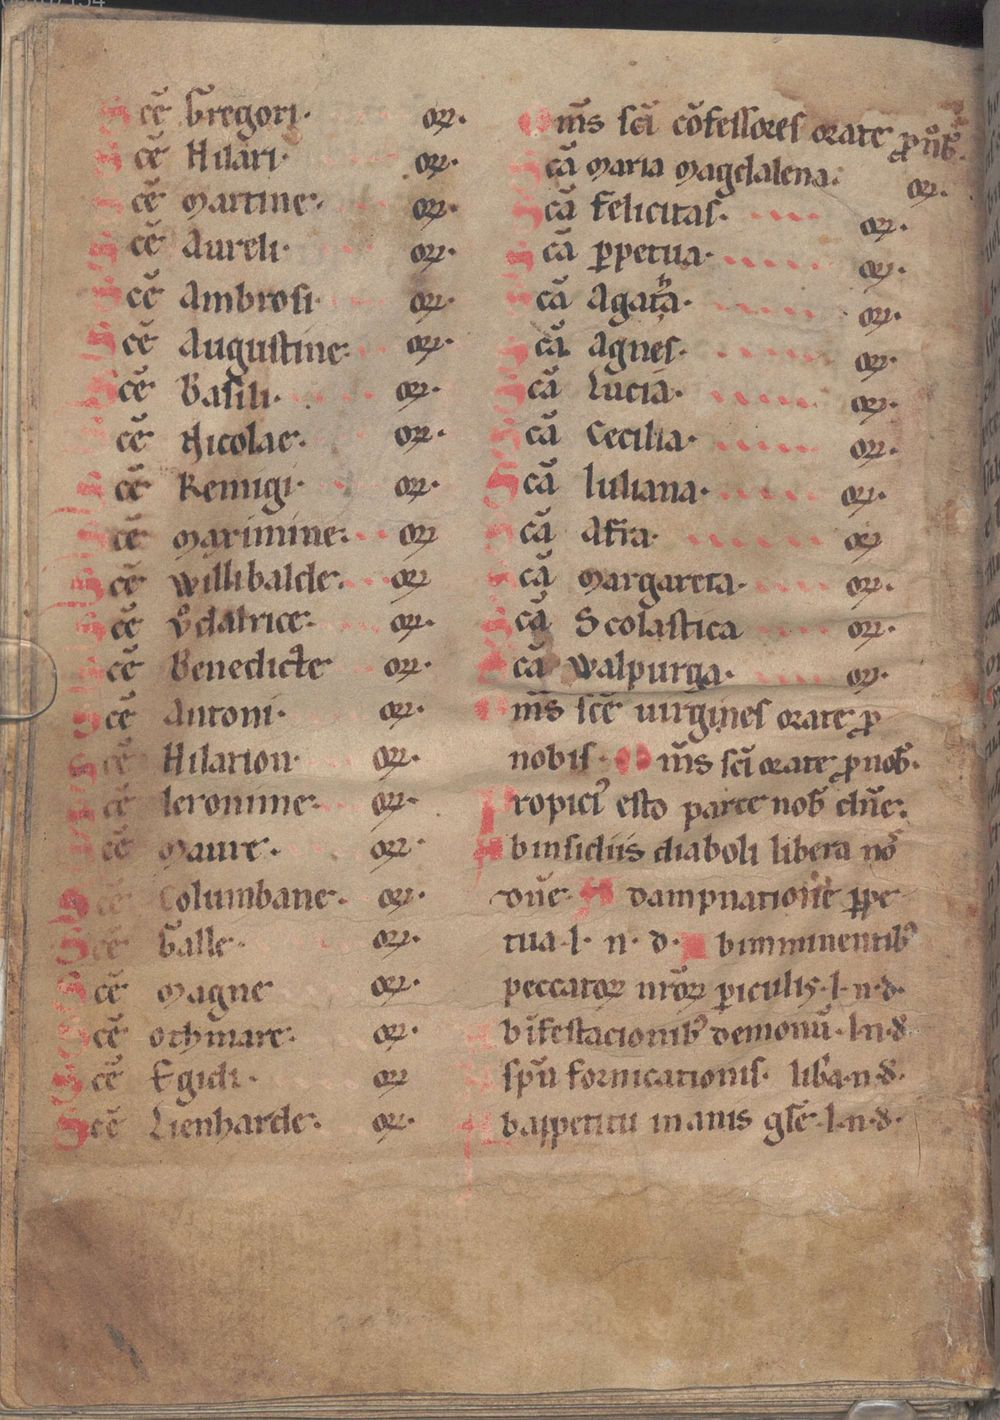 Scē Gregori· orꝫ·
Scē Hilari· orꝫ·
Scē Martine· orꝫ·
Scē Aureli· orꝫ·
Scē Ambrosi· orꝫ·
Scē Augustine· orꝫ·
Scē Basili· orꝫ·
Scē Nicolae· orꝫ·
Scē Remigi· orꝫ·
Scē Maximine· orꝫ
Scē Willibalde· orꝫ
Scē Vͦdalrice· orꝫ·
Scē Benedicte orꝫ·
Scē Antoni· orꝫ·
Scē Hilarion· orꝫ·
Scē Ieronime· orꝫ·
Scē Maure· orꝫ·
Scē Columbane· orꝫ·
Scē Galle· orꝫ·
Scē Magne orꝫ·
Scē Othmare· orꝫ·
Scē Egidi· orꝫ
Scē Lienharde· orꝫ·
Om̄s sc̄i cōfessores orate ꝓ nob̄·
Scā Maria Magdalena· orꝫ·
Scā Felicitas· orꝫ·
Scā ꝑpetua· orꝫ·
Scā Agatha· orꝫ·
Scā Agnes· orꝫ·
Scā Lucia· orꝫ·
Scā Cecilia· orꝫ·
Scā Iuliana· orꝫ·
Scā Afra· orꝫ
Scā Margareta· orꝫ·
Scā Scolastica orꝫ·
Scā Walpurga· orꝫ·
Om̄s scē uirgines orate ꝓ
nobis· Om̄s sc̄i orate ꝓ nob̄·
Propiciꝰ esto parce nob̄ dn̄e·
Ab insidiis diaboli libera nō
dn̄e· A dampnatione ꝑpe
tua·l· n· d· Ab imminentibꝰ
peccatoꝝ nr̄oꝝ ꝑiculis·l·n·d·
Ab īfestacionibꝰ demonū·l·n·d·
A sp̄u fornicationis· lib̄a·n·d·
Ab appetitu inanis gl̄e·l·n·d·